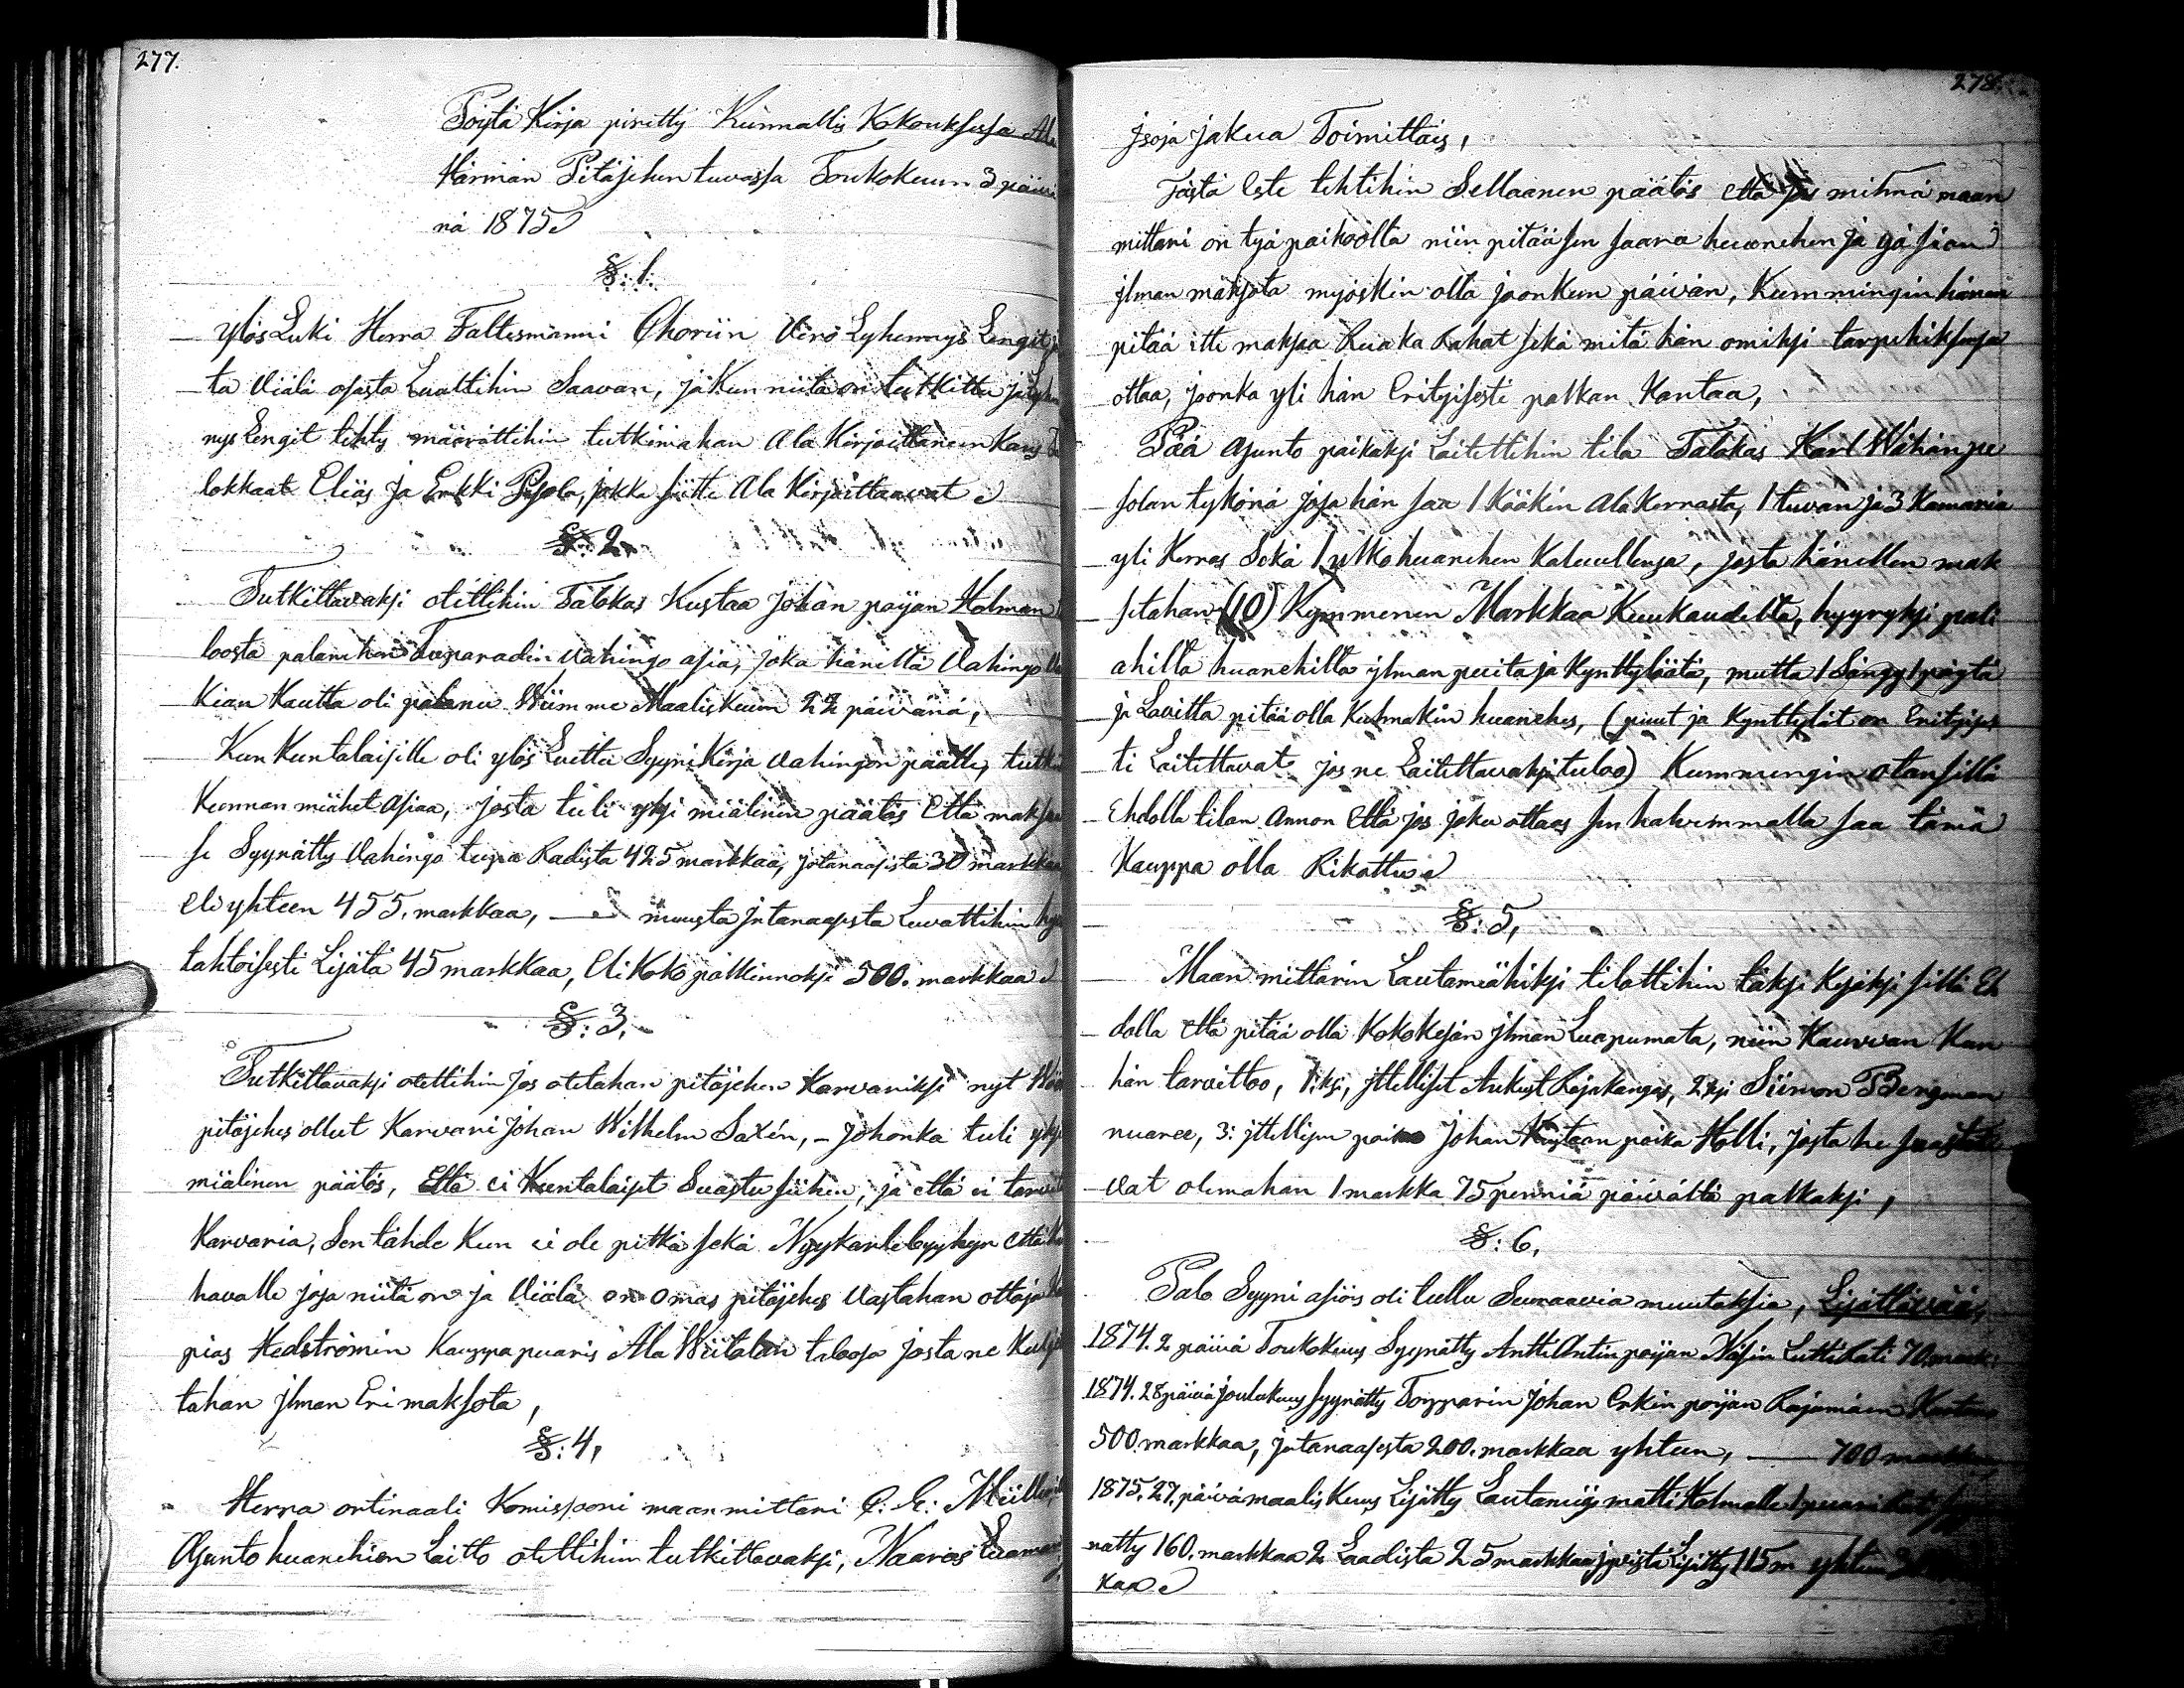 277.
Pöytä Kirja piretty Kunnallis Kokouksessa Ala
Härmän Pitäjehen tuvassa Toukokuun 3 päivä
nä 1875
§: 1.
Ylös Luki Herra Faltesmanni Choriin Vero Lyhennys Lengit,
ta Viälä osasta Luattihin Saavan, ja Kun niitä on tutkittu ja
nys Lengit tehty määrättihin tutkimahan Ala Kirjoittaneen Kans
lokkaat Elias ja Erkki Pesola, jokka sitte Ala Kirjoittaavat
§: 2.
Tutkittavaksi otettihin Talokas Kustaa Johan pojan Holman
loosta palanehen Luparadin vahingo asia, joka häneltä Vahingo
kian Kautta oli palanu Wiimme Maaliskuun 22 päivänä,
Kun Kuntalaisille oli ylös Luettu Syyni Kirja vahingon päälle,
Kunnan miähet Asiaa, josta tuli yksi miälinen päätös Että
se Syynätty Vahingo tupa Radista 425 markkaa, jrtanaasista 30 markkaa
eli yhteen 455. markkaa, — muusta jrtanaasista Luvattihin
tahtoisesti Lisätä 45 markkaa, Eli Koko palkinnoksi 500. markkaa
§: 3.
Tutkittavaksi otettihin jos otetahan pitäjehen Karvariksi nyt
pitäjehes ollut Karvari Johan Wilhelm Saxén, - Johonka tuli
miälinen päätös, Että ei Kuntalaiset Suastu siihen, ja että ei
Karvaria, Sen tähde Kun ei ole pitkä sekä Nyykarlebyyhyn että
havalle josa niitä on ja Viälä on omas pitäjehes Vastahan ottaja
pias Hedströmin Kauppa puaris Ala Wiitalan talosa josta ne
tahan jlman Eri maksota,
§: 4,
Herra ortinaali Komissooni maanmittari C. E: Müller,
Asunto huanehien Laitto otettihin tutkittavaksi, Naaras
278.
jsoja jakua Toimittais,
Tästä Este tehtihin Sellaanen päätös että jos mihnä maan
mittari on työ paikoolla niin pitää sen saara huanehen ja yä sian
jlman maksota myöskin olla jonkun päivän, Kummingin hänen
pitää itte maksaa Ruaka Rahat sekä mitä hän omiksi tarpehiksensa
ottaa, jonka yli hän Erityisesti palkan Kantaa,
Pää Asunto paikaksi Laitettihin tila Talokas Karl Wähänpe
solan tykönä josa hän saa 1 Köökin Ala Kerrasta, 1 tuvan ja 3 Kamaria
yli Kerras Sekä 1 ulko huanehen Kaluullensa, josta hänellen mak
setahan (10) Kymmenen Markkaa Kuukaudelta, hyyryksi pali
ahilta huanehilta jlman puita ja Kynttylöötä, mutta 1 Sänzy 1 pöytä
ja Lavitta pitää olla Kulmakin huanehes, (puut ja Kynttylät on Erityises
ti Laitettavat jos ne Laitettavaksi tuloo) Kummingin otan sillä
Ehdolla tilan Annon Että jos joku ottaas sen halvemmalla saa tämä
Kauppa olla Rikottu
§: 5,
Maan mittarin Lautamiähiksi tilattihin täksi Kesäksi sillä Eh
dolla että pitää olla Koko Kesän jlman Luapumata, niin Kauvvan Kun
hän tarvittoo, 1:ksi, jttelliset Aukust Rajakangas, 2:ksi Siimon Bergman
nuaree, 3: jttellisen Johan Kustaan poika Holli, josta he
vat olemahan 1 markka 75 penniä päivältä palkaksi,
§: 6,
Palo Syyni asiois oli tullu Seuraavia muutoksia, Lisättävää,
1874. 2 päivä Toukokuus Syynätty Antti Antin pojan 70
1874. 28 päivä Joulukuus syynätty Torpparin Johan Erkin pojan Rajamäen
500 markkaa, jrtanaasesta 200. markkaa yhteen, — 700 markkaa
1875. 27. päivä maalis Kuus, Lisätty Lautamiäs matti Holmalle 1
nätty 160. markkaa 2 Laadista 25 markkaa Lisätty 115 m yhteen
kaa